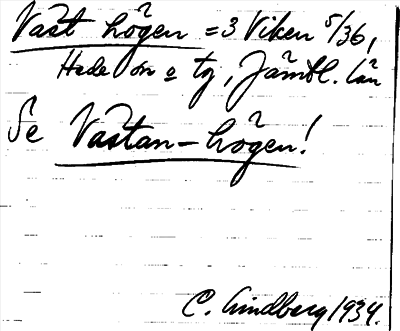 Västhögen = 3 Viken 5/36,
Hede sn o tg, Jämtl. län
Se Västanhögen!
C. Lindberg 1934.